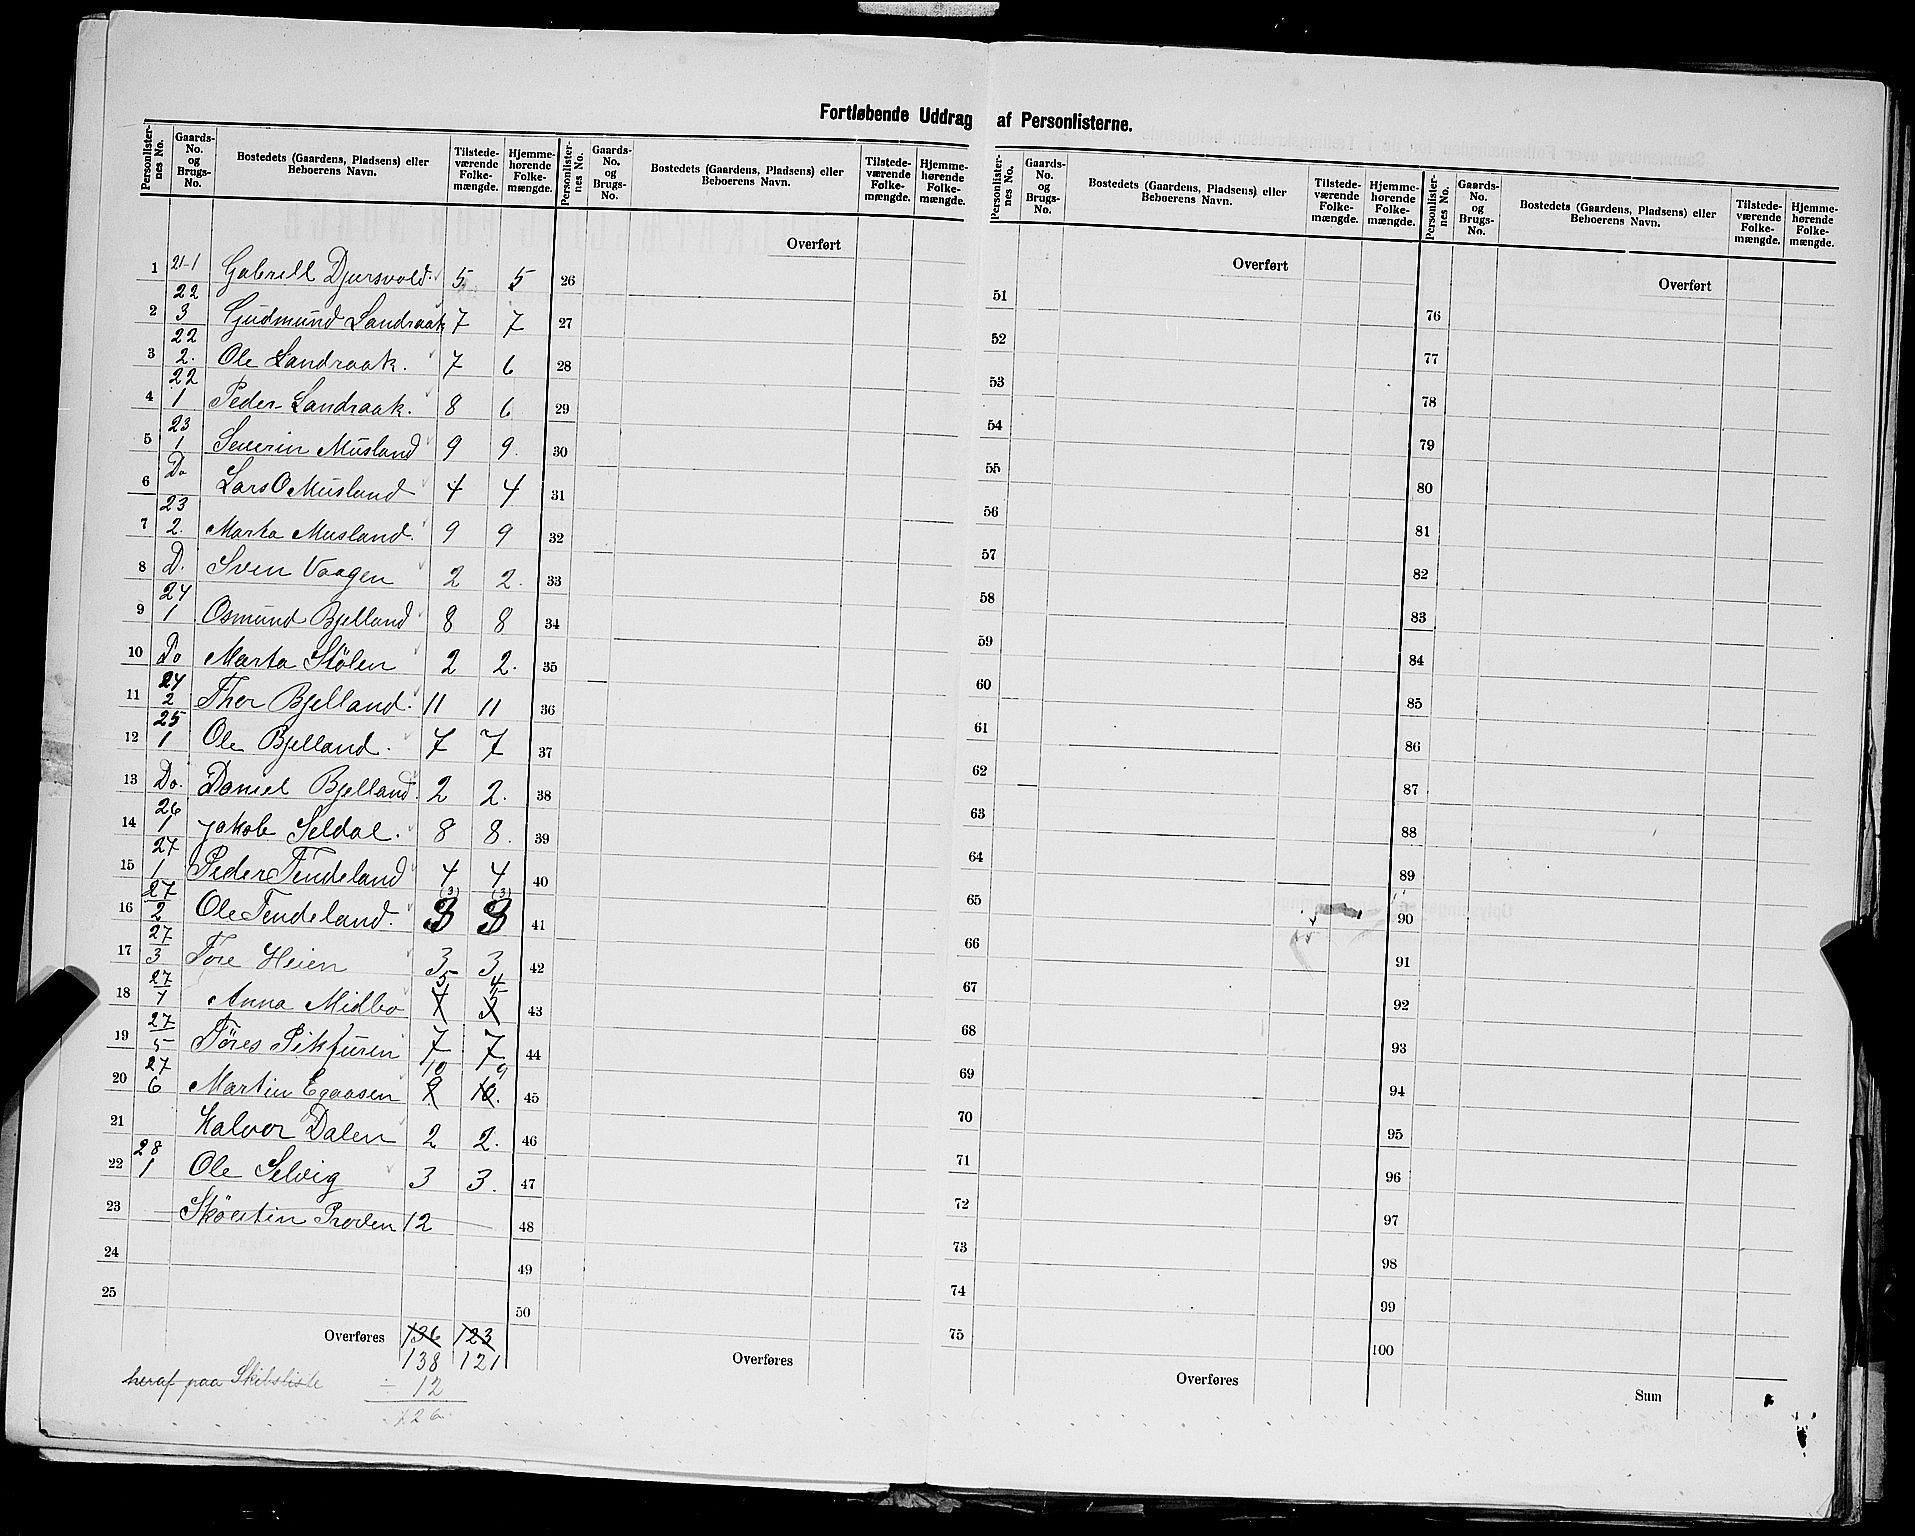 Fortløbende Uddrag af Personlisterne.
Personlister-nes No. Gaards-No. og Brugs-No. Bostedets (Gaardens, Pladsens) eller Beboerens Navn. Tilstede-værende Folke-mængde. Hjemme-hørende Folke-mængde.
1 21-1 Gabriell Djursvold. 5 5
2 22/3 Gudmund Landraak 7 7
3 22/2. Ole Landraak. 7 6
4 22/1 Peder Landraak. 8 6
5 23/1 Severin Musland 9 9.
6 Do Lars O Musland 4 4
7 23/2. Marta Musland. 9 9
8 D. Sven Vaagen 2 2.
9 24/1 Osmund Bjelland 8 8
10 Do Marta Stølen 2 2.
11 24/2 Thor Bjelland. 11 11
12 25/1 Ole Bjelland. 7 7
13 Do. Daniel Bjelland. 2 2.
14 26/1 Jakob Seldal. 8 8.
15 27/1 Peder Tendeland 4 4
16 27/2 Ole Tendeland. (3) 3 (3) 3
17 27/3 Tore Heien 3 3
18 27/4 Anna Midbo 5 4
19 27/5 Töres Sikfuren 7 7
20 27/6 Martin Egaasen 10 9 10.
21 Halvor Dalen 2 2.
22 28/1 Ole Selvig 3 3.
23 Sköestin Proven 12
24
25
Overføres 136 123
138 121
heraf paa Skibsliste ÷ 12
126.
Personlister-nes No. Gaards-No. og Brugs-No. Bostedets (Gaardens, Pladsens) eller Beboerens Navn. Tilstede-værende Folke-mængde. Hjemme-hørende Folke-mængde.
Overført
26
27
28
29
30
31
32
33
34
35
36
37
38
39
40
41
42
43
44
45
46
47
48
49
50
Overføres
Personlister-nes No. Gaards-No. og Brugs-No. Bostedets (Gaardens, Pladsens) eller Beboerens Navn. Tilstede-værende Folke-mængde. Hjemme-hørende Folke-mængde.
Overført
51
52
53
54
55
56
57
58
59
60
61
62
63
64
65
66
67
68
69
70
71
72
73
74
75
Overføres
Personlister-nes No. Gaards-No. og Brugs-No. Bostedets (Gaardens, Pladsens) eller Beboerens Navn. Tilstede-værende Folke-mængde. Hjemme-hørende Folke-mængde.
Overført
76
77
78
79
80
81
82
83
84
85
86
87
88
89
90
91
92
93
94
95
96
97
98
99
100
Sum